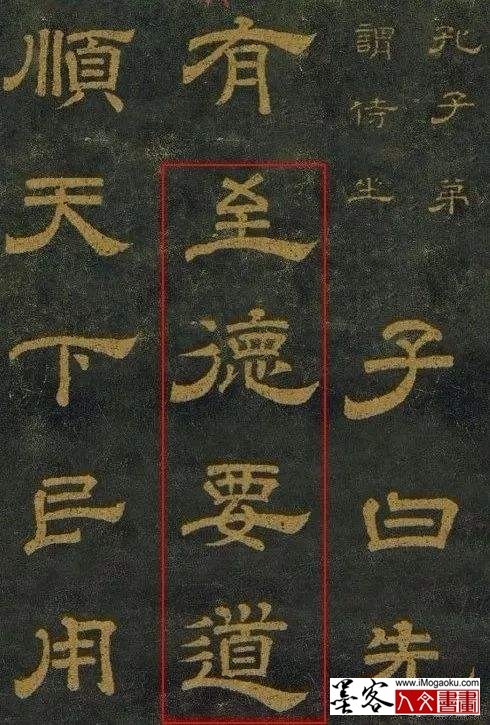 孔子弟
謂侍坐
子曰先
有至德要道
順天下㠯用
墨客
www.iMogaoku.com
人文書畫